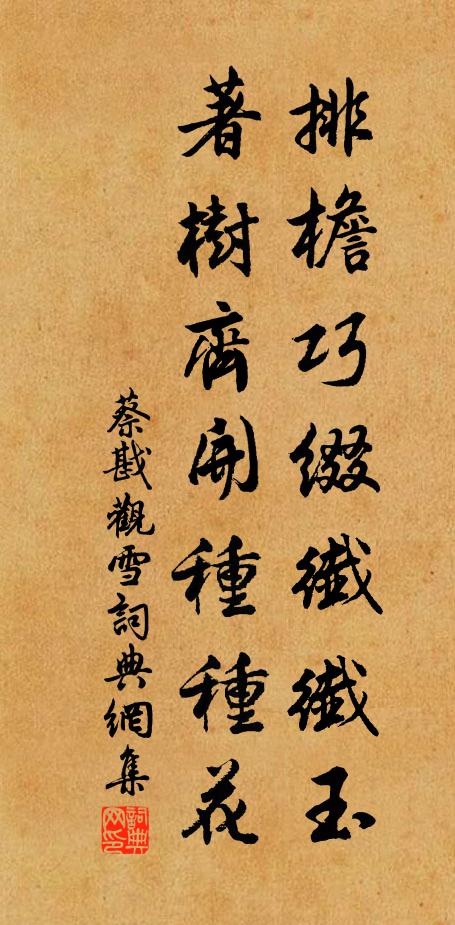 排檐巧綴纖纖玉
著樹齊開種種花
蔡戡觀雪詞典網集
詞典网印